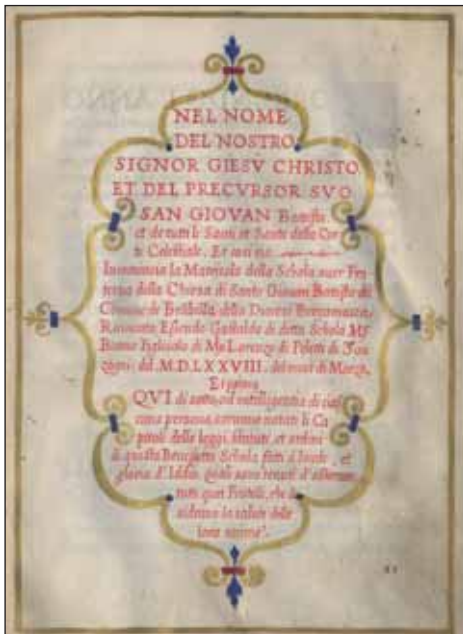 NEL NOME
DEL NOSTRO
SIGNOR GIESV CHRISTO
ET DEL PRECVRSOR SVO
SAN GIOVAN Batista
et de tutti li Santi et Sante della Cor
te Celestiale. Et
la Matricola della Schola
della Chiesa di Santo Giovan Batista di
della Diocesi Bergamasca,
Essendo Gastaldo di detta Schola
di Lorenzo di
del M.D.LXXVIII. del mese di Marzo,
Et prima
QVI di sotto ad intelligentia di cias
cuna persona, saranno notati li Ca
pitoli delle leggi, statuti, et ordini
di questa Benedetta Schola fatti à laude, et
gloria d'Iddio, quali sono tenuti d'
tutti quei Fratelli, che
la salute delle
loro anime.